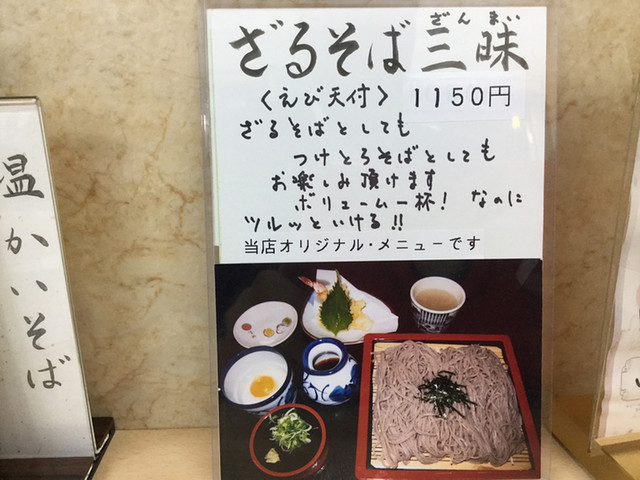 ざんまい
ざるそば三昧
〈えび天付〉 1150円
ざるそばとしても
つけとろそばとしても
お楽しみ頂けます
ボリューム一杯! なのに
ツルッといける!!
当店オリジナル・メニューです
温かいそば